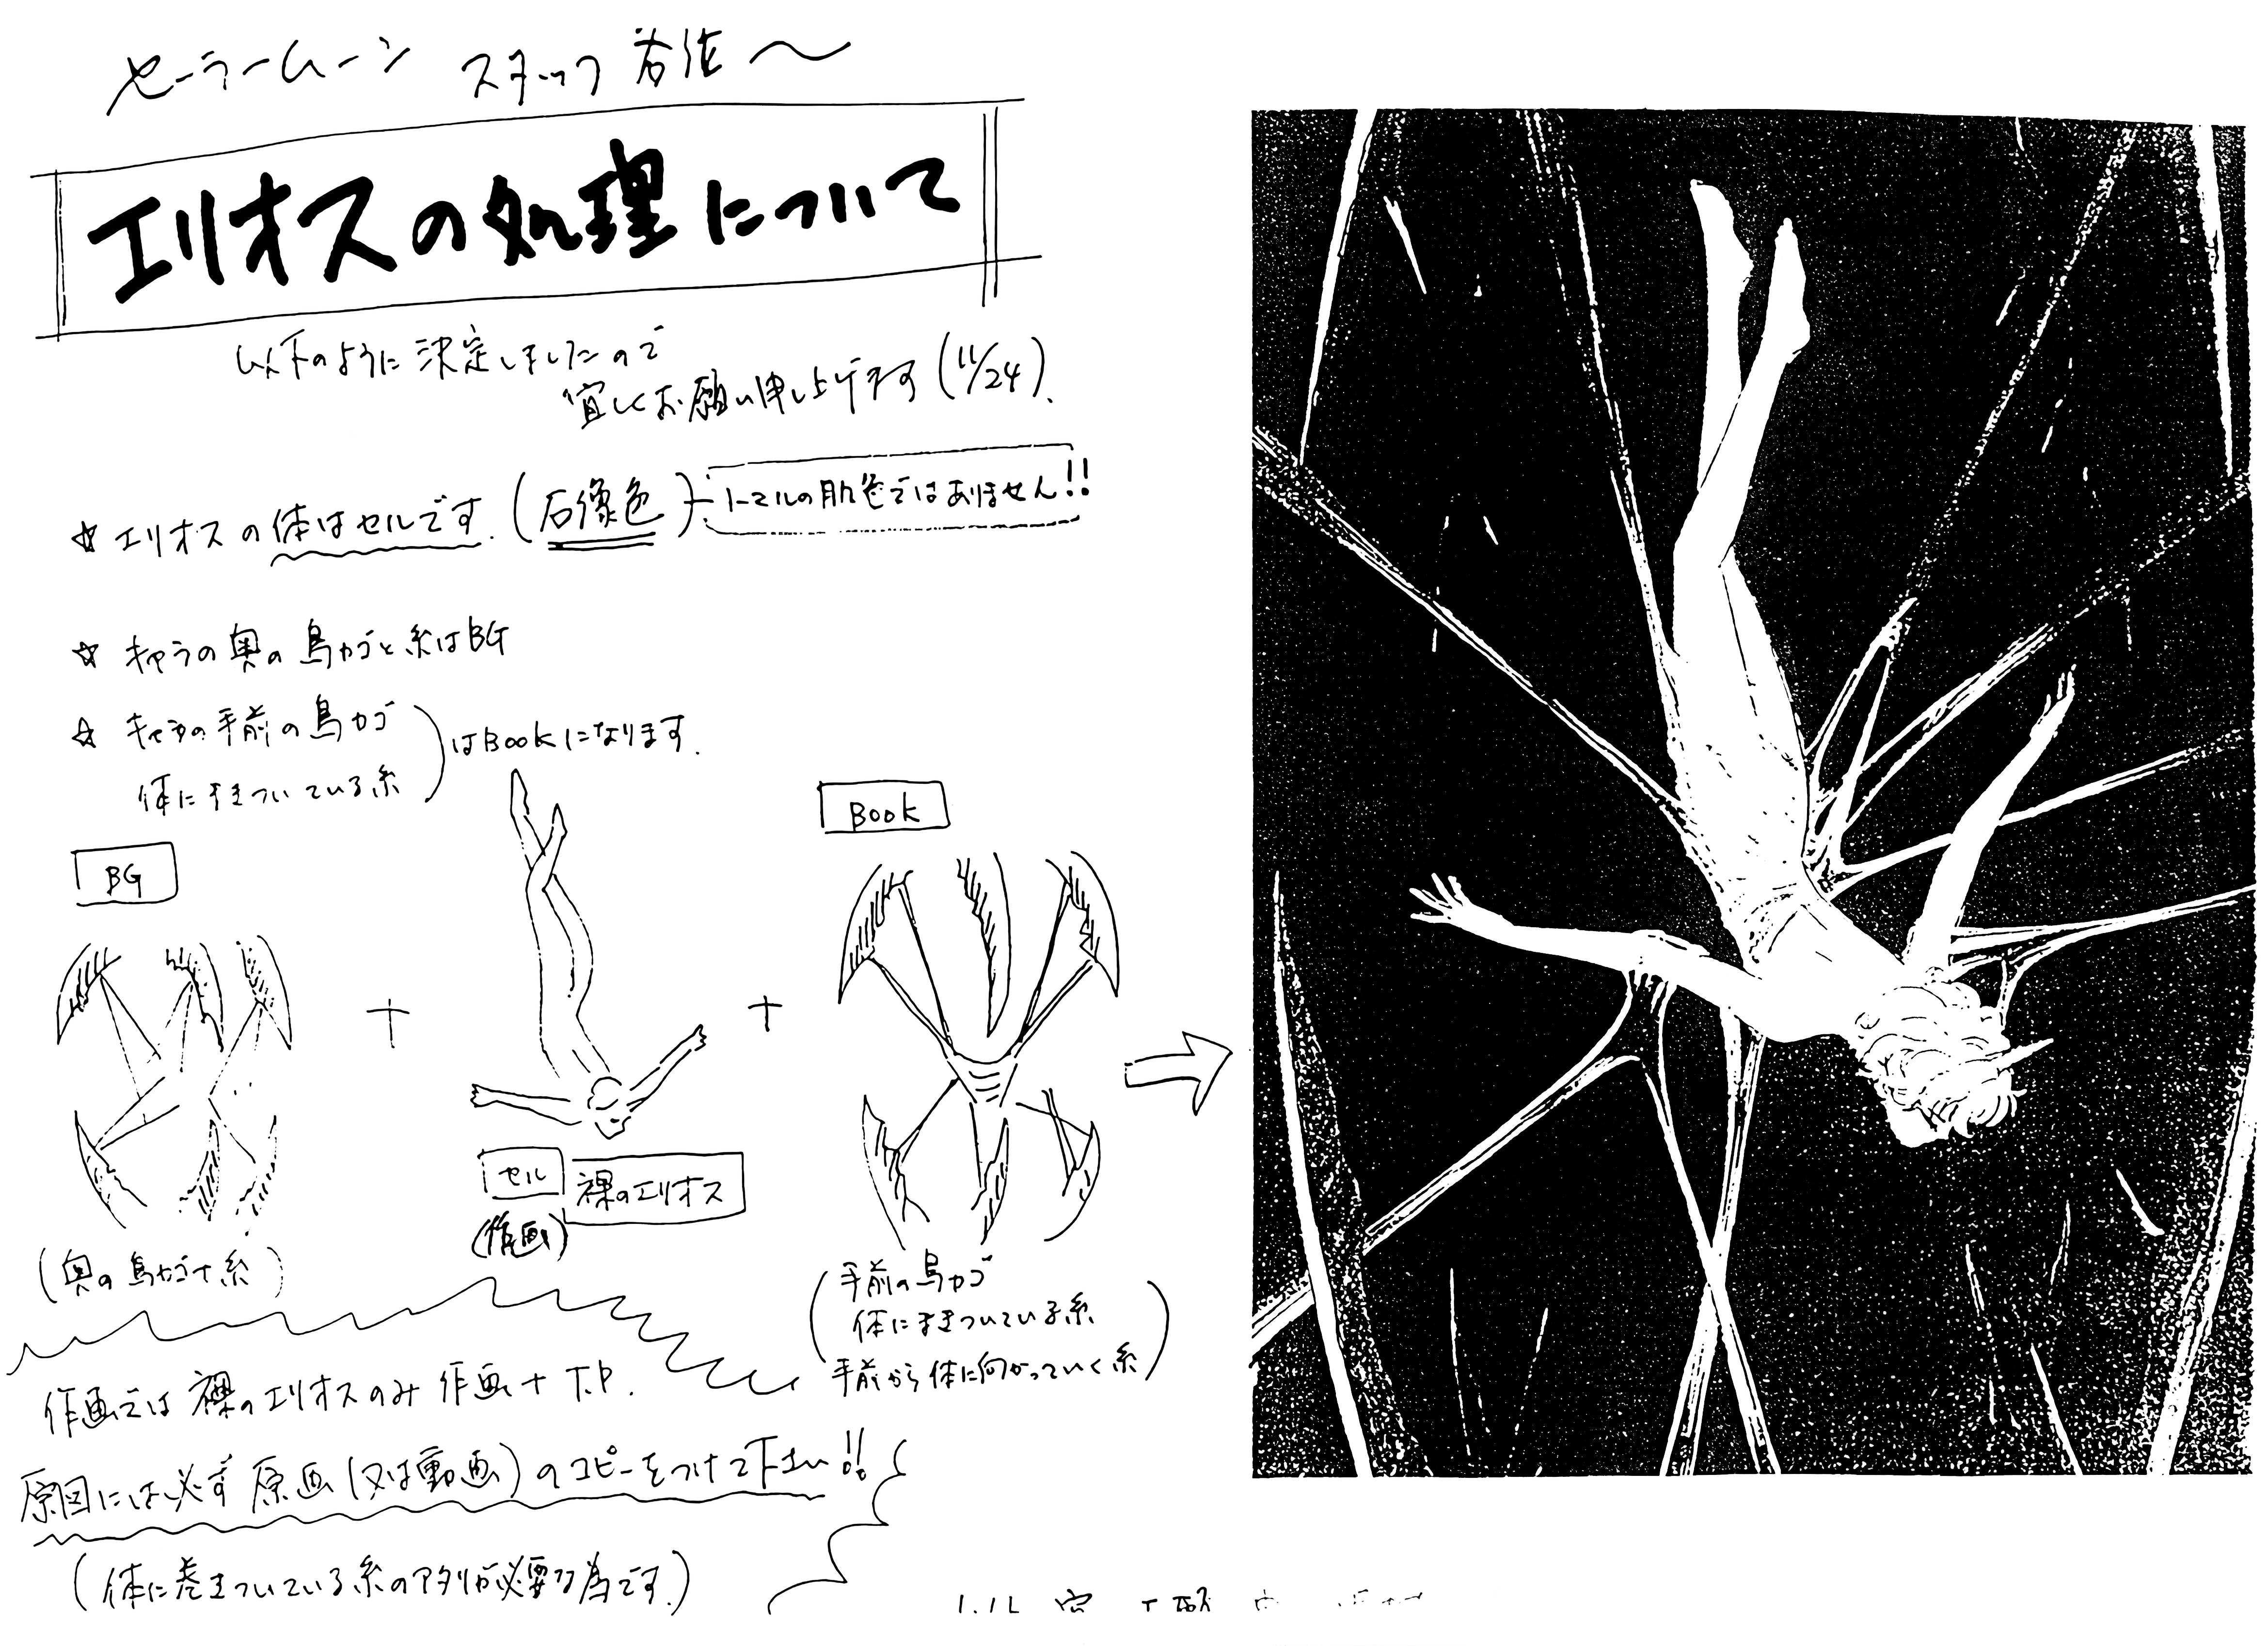 セーラームーン スタッフ各位〜
エリオスの処理について
以下のように決定しましたので
宜しくお願い申し上げます(11/24).
☆ エリオスの体はセルです.(石像色)
ノーマルの肌色ではありません!!
☆ キャラの奥の鳥カゴと糸はBG
☆ キャラの手前の鳥カゴ
体にまきついている糸
はBOOKになります.
BG
BOOK
+
+
セル
裸のエリオス
(作画)
(奥の鳥カゴ+糸)
(手前の鳥カゴ
体にまきついている糸
手前から体に向かっていく糸)
作画では裸のエリオスのみ作画+T.P.
原図には必ず原画(又は動画)のコピーをつけて下さい!!
(体に巻きついている糸のアタリが必要な為です.)